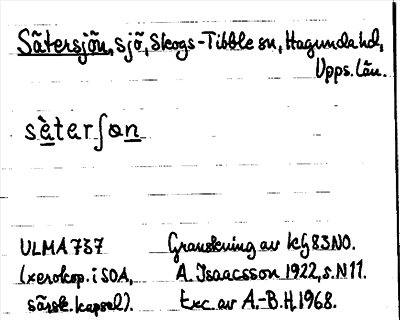 Sätersjön, sjö, Skogs-Tibble sn, Hagunda hd,
Upps. län.
sè̱tarʃɷṉ
ULMA 737 Granskning av kG 83 NO.
(xerokop. i SOA, A. Isaacsson 1922, s. N 11.
särsk. kapsel). Exc. av A.-B. H. 1968.